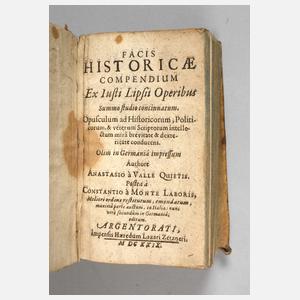 FACIS
HISTORICÆ
COMPENDIUM
Ex Iusti Lipsii Operibus
Summo studio concinnatum.
Opusculum ad Historicorum, Politi-
corum, & veterum Scriptorum intelle-
ctum mirâ brevitate & dexte-
ritate conducens.
Olim in Germaniâ impressum
Authore
ANASTASIO à VALLE QUIETIS.
Posteà à
CONSTANTIO à MONTE LABORIS,
Meliori ordine restitutum, emendatum,
auctum, in Italia: nunc
verò secundùm in Germaniâ,
editum.
ARGENTORATI,
Impensis Hæredum Lazari Zetzneri.
M DC XXIX.